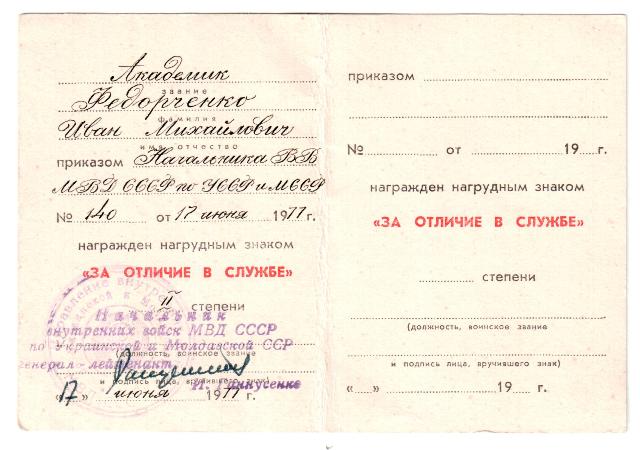 Академик
звание
Федорченко
фамилия
Иван Михайлович
имя отчество
приказом Начальника ВВ
МВД СССР по УССР и МССР
№ 140 от 17 июня 1977 г.
награжден нагрудным знаком
«ЗА ОТЛИЧИЕ В СЛУЖБЕ»
II степени
Начальник
внутренних войск МВД СССР
по Украинской и Молдавской ССР
генерал-лейтенант
(должность, воинское звание
и подпись лица, вручившего знак)
«17» июня 1977 г.
приказом
№ от 19 г.
награжден нагрудным знаком
«ЗА ОТЛИЧИЕ В СЛУЖБЕ»
степени
(должность, воинское звание
и подпись лица, вручившего знак)
« » 19 г.